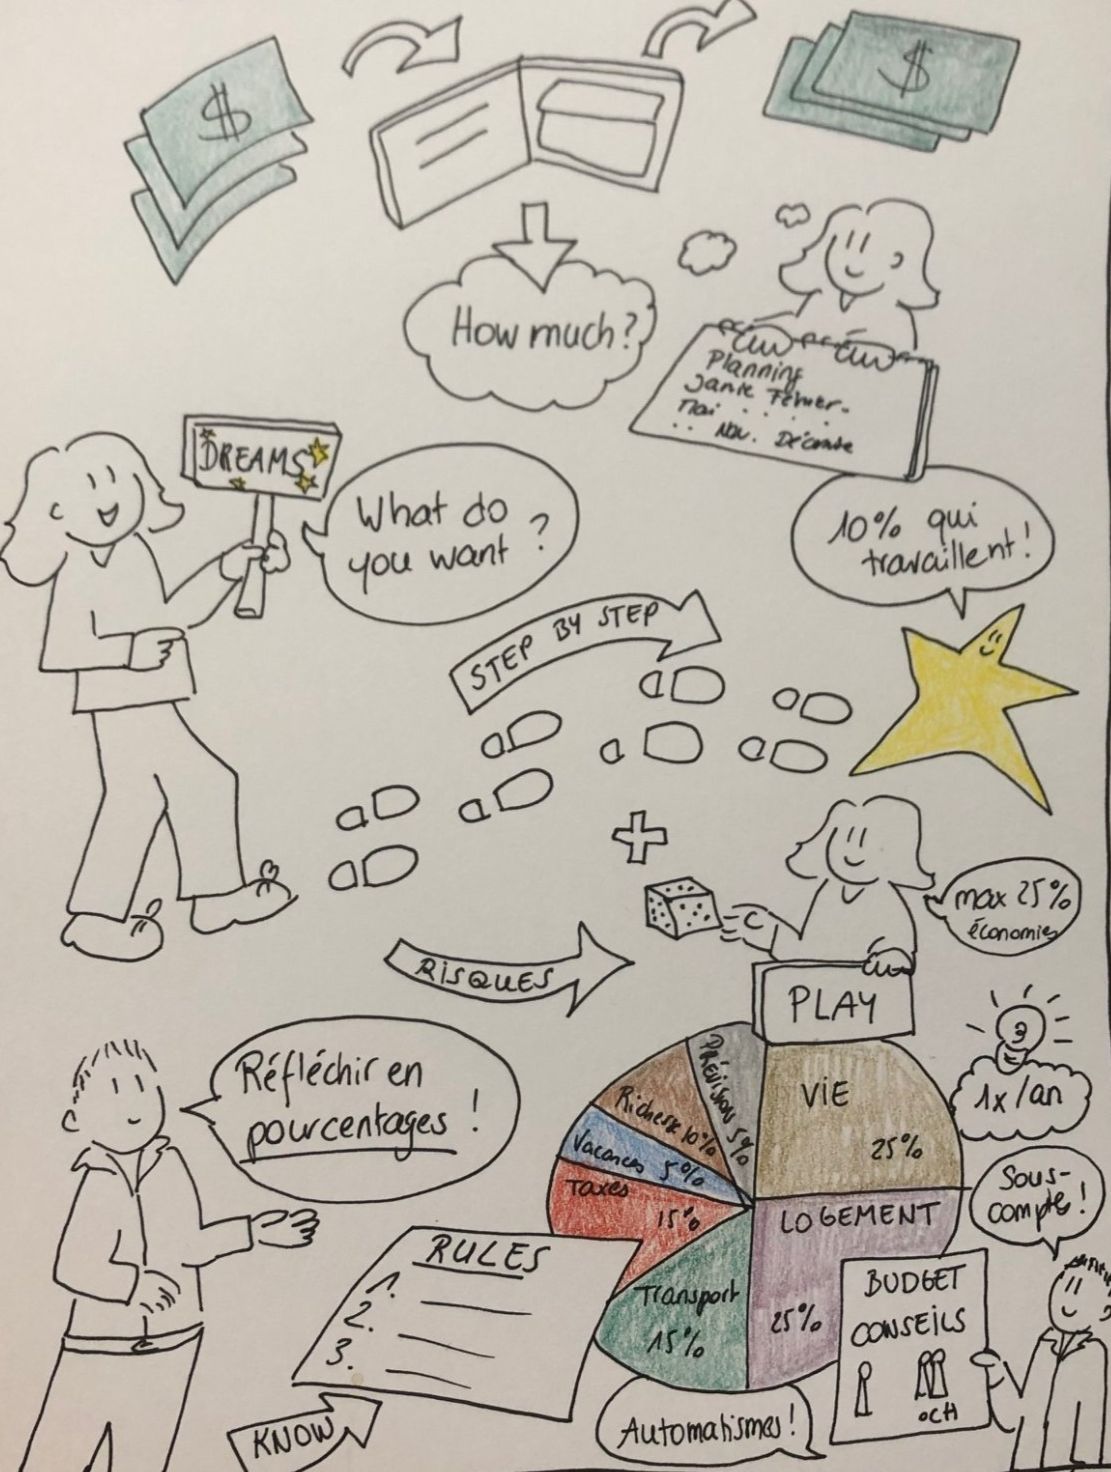 $
$
How much?
Planning
Janv. Février.
Mai . . . .
. . Nov. Décembre
DREAMS
What do
you want ?
10% qui
travaillent!
STEP BY STEP
RISQUES
PLAY
max 25%
économies
Réfléchir en
pourcentages !
PRÉVISIONS 5%
Richesse 10%
Vacances 5%
Taxes
15%
Transport
15%
VIE
25%
LOGEMENT
25%
1x/an
Sous-
compte!
RULES
1.
2.
3.
KNOW
BUDGET
CONSEILS
Automatismes!